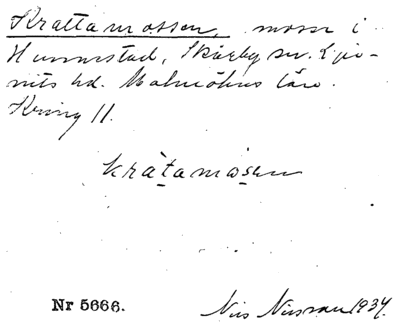 Krattamossen, mosse i
Hunnestad, Skårby sn. Lju-
nits hd. Malmöhus län.
Kring 11.
kràtamòsen
Nr 5666.
Nils Nilsson 1934.